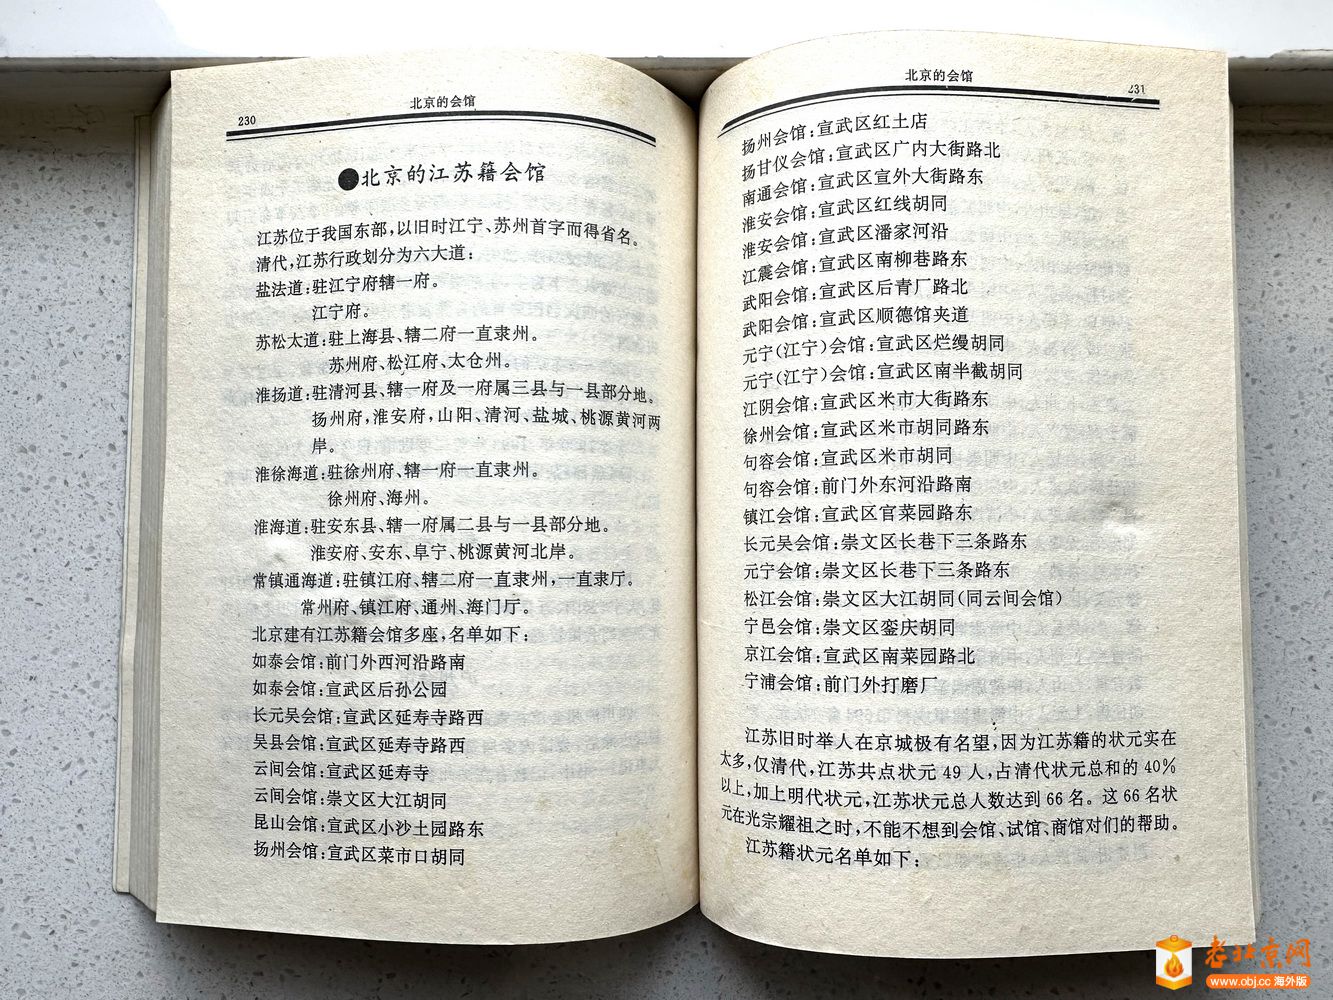 北京的会馆
230
●北京的江苏籍会馆
江苏位于我国东部,以旧时江宁、苏州首字而得省名。
清代,江苏行政划分为六大道:
盐法道:驻江宁府辖一府。
江宁府。
苏松太道:驻上海县、辖二府一直隶州。
苏州府、松江府、太仓州。
淮扬道:驻清河县、辖一府及一府属三县与一县部分地。
扬州府,淮安府,山阳、清河、盐城、桃源黄河两
岸。
淮徐海道:驻徐州府、辖一府一直隶州。
徐州府、海州。
淮海道:驻安东县、辖一府属二县与一县部分地。
淮安府、安东、阜宁、桃源黄河北岸。
常镇通海道:驻镇江府、辖二府一直隶州,一直隶厅。
常州府、镇江府、通州、海门厅。
北京建有江苏籍会馆多座,名单如下:
如泰会馆:前门外西河沿路南
如泰会馆:宣武区后孙公园
长元吴会馆:宣武区延寿寺路西
吴县会馆:宣武区延寿寺路西
云间会馆:宣武区延寿寺
云间会馆:崇文区大江胡同
昆山会馆:宣武区小沙土园路东
扬州会馆:宣武区菜市口胡同
北京的会馆
231
扬州会馆:宣武区红土店
扬甘仪会馆:宣武区广内大街路北
南通会馆:宣武区宣外大街路东
淮安会馆:宣武区红线胡同
淮安会馆:宣武区潘家河沿
江震会馆:宣武区南柳巷路东
武阳会馆:宣武区后青厂路北
武阳会馆:宣武区顺德馆夹道
元宁(江宁)会馆:宣武区烂缦胡同
元宁(江宁)会馆:宣武区南半截胡同
江阴会馆:宣武区米市大街路东
徐州会馆:宣武区米市胡同路东
句容会馆:宣武区米市胡同
句容会馆:前门外东河沿路南
镇江会馆:宣武区官菜园路东
长元吴会馆:崇文区长巷下三条路东
元宁会馆:崇文区长巷下三条路东
松江会馆:崇文区大江胡同(同云间会馆)
宁邑会馆:崇文区銮庆胡同
京江会馆:宣武区南菜园路北
宁浦会馆:前门外打磨厂
江苏旧时举人在京城极有名望,因为江苏籍的状元实在
太多,仅清代,江苏共点状元49人,占清代状元总和的40%
以上,加上明代状元,江苏状元总人数达到66名。这66名状
元在光宗耀祖之时,不能不想到会馆、试馆、商馆对们的帮助。
江苏籍状元名单如下:
老北京网
www.obj.cc 海外版